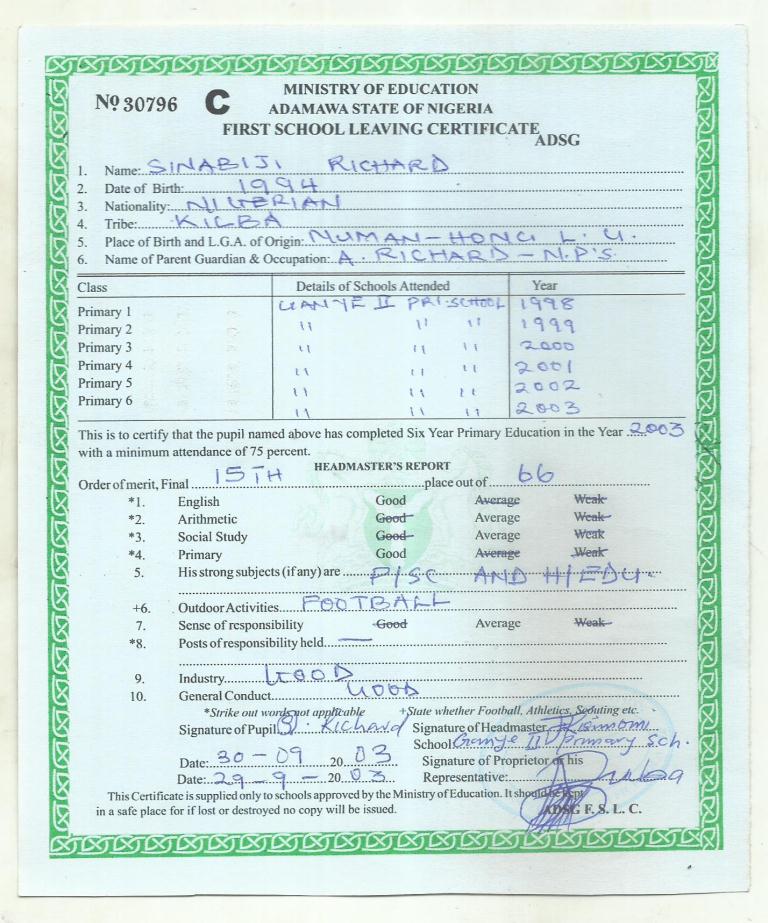 No 30796 C
MINISTRY OF EDUCATION
ADAMAWA STATE OF NIGERIA
FIRST SCHOOL LEAVING CERTIFICATE
ADSG
1. Name: SINABIJI RICHARD
2. Date of Birth: 1994
3. Nationality: NIGERIAN
4. Tribe: KILBA
5. Place of Birth and L.G.A. of Origin: NUMAN-HONG L. G.
6. Name of Parent Guardian & Occupation: A. RICHARD - N.P'S
Class Details of Schools Attended Year
Primary 1 GANYE II PRI. SCHOOL 1998
Primary 2 " " " 1999
Primary 3 " " " 2000
Primary 4 " " " 2001
Primary 5 " " " 2002
Primary 6 " " " 2003
This is to certify that the pupil named above has completed Six Year Primary Education in the Year 2003
with a minimum attendance of 75 percent.
HEADMASTER'S REPORT
Order of merit, Final 15TH place out of 66
*1. English Good Average Weak
*2. Arithmetic Good Average Weak
*3. Social Study Good Average Weak
*4. Primary Good Average Weak
5. His strong subjects (if any) are P/SC AND H/EDU.
+6. Outdoor Activities FOOTBALL
7. Sense of responsibility Good Average Weak
*8. Posts of responsibility held. —
9. Industry GOOD
10. General Conduct GOOD
*Strike out words not applicable +State whether Football, Athletics, Scouting etc.
Signature of Pupil S. Richard Signature of Headmaster
School: Ganye II Primary Sch.
Date: 30-09 2003 Signature of Proprietor or his
Date: 29-9- 2003 Representative:
This Certificate is supplied only to schools approved by the Ministry of Education. It should be kept
in a safe place for if lost or destroyed no copy will be issued. ADSG F. S. L. C.